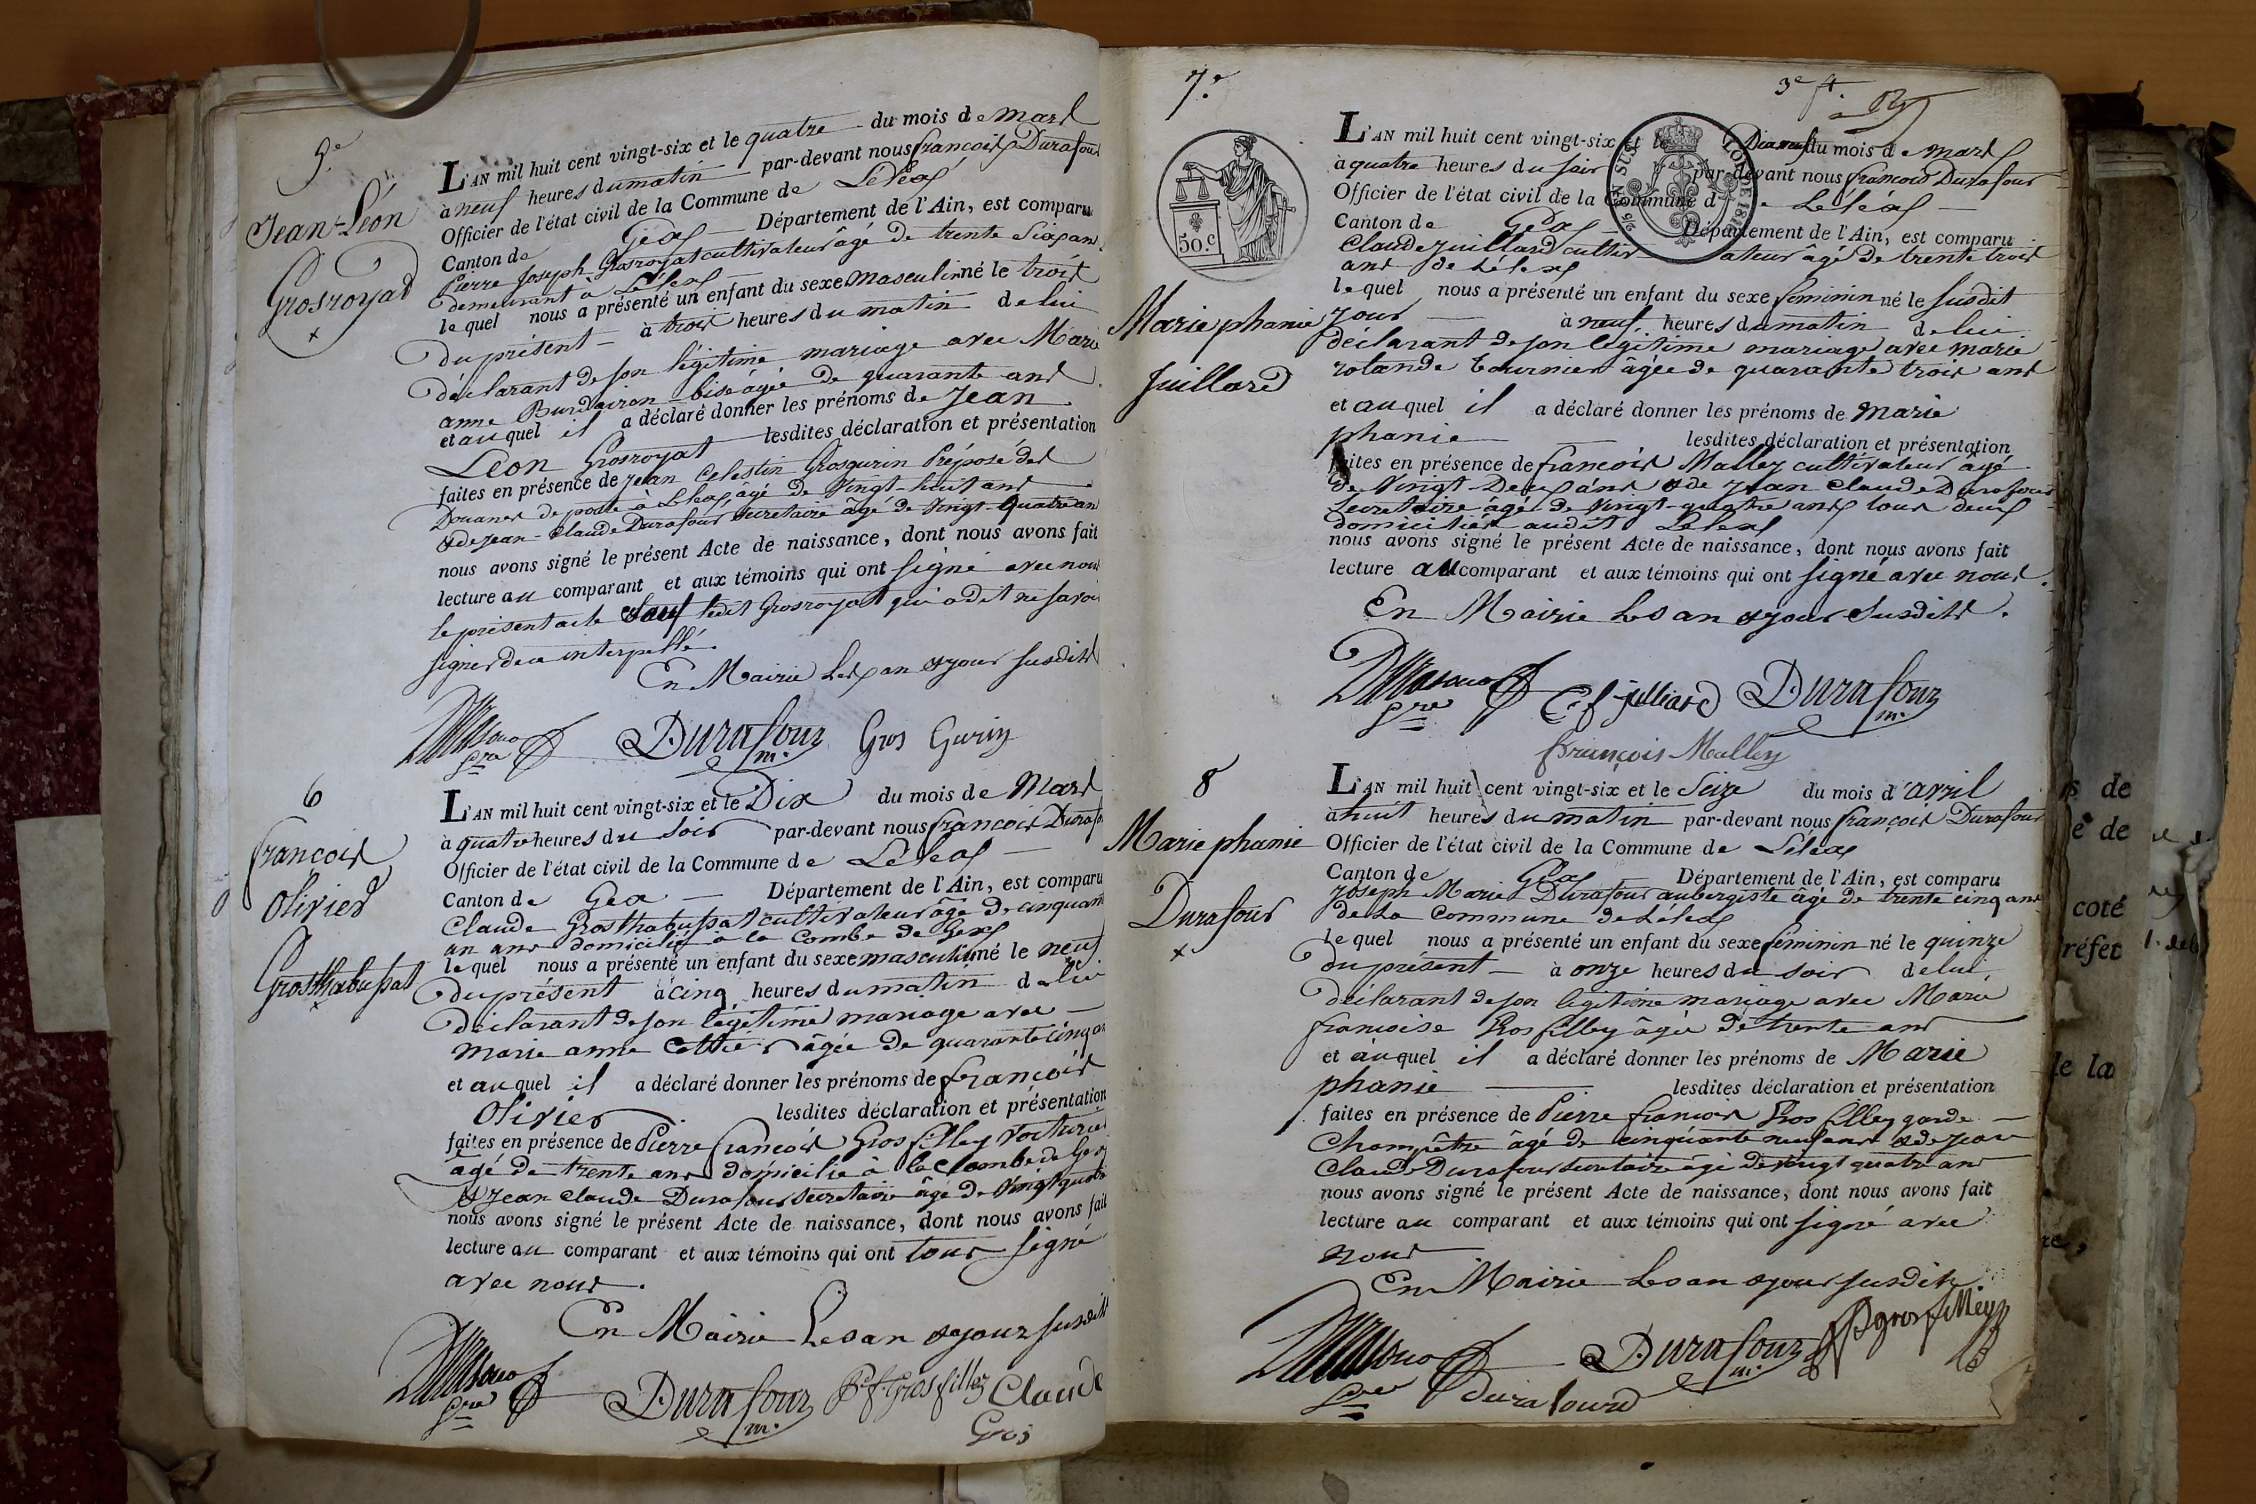 5e
Jean-Léon
Grosroyat
L'AN mil huit cent vingt-six et le quatre du mois de Mars
à neuf heures du matin par-devant nous francois Durafour
Officier de l'état civil de la Commune de Lélex
Canton de Gex Département de l'Ain, est comparu
Pierre Joseph Grosroyat cultivateur âgé de trente Six ans
demeurant à Lélex
lequel nous a présenté un enfant du sexe Masculin né le trois
du présent à trois heures du matin de lui
déclarant de son légitime mariage avec Marie
anne âgée de quarante ans
et auquel il a déclaré donner les prénoms de Jean
Léon Grosroyat lesdites déclaration et présentation
faites en présence de Jean Celestin Grosgurin Préposé des
Douanes de poste à Lélex, âgé de Vingt-huit ans
& de Jean-Claude Durafour Secretaire âgé de Vingt-Quatre ans
nous avons signé le présent Acte de naissance, dont nous avons fait
lecture au comparant et aux témoins qui ont signé avec nous
le présent acte Sauf ledit Grosroyat qui a dit ne savoir
signer de ce interpellé.
En Mairie Les an & jour susdits
Durafour m. Gros Gurin
6
francois
Olivier
Grosthabussat
L'AN mil huit cent vingt-six et le Dix du mois de Mars
à quatre heures du soir par-devant nous francois Durafour
Officier de l'état civil de la Commune de Lélex
Canton de Gex Département de l'Ain, est comparu
Claude Grosthabussat cultivateur âgé de cinquante
un ans domicilié à la Combe de Gex
lequel nous a présenté un enfant du sexe masculin né le neuf
du présent à cinq heures du matin de lui
déclarant de son légitime mariage avec
marie anne âgée de quarante cinq ans
et auquel il a déclaré donner les prénoms de francois
Olivier lesdites déclaration et présentation
faites en présence de Pierre francois Grosfilley Voiturier
âgé de trente ans domicilié à la Combe de Gex
& Jean Claude Durafour secretaire âgé de Vingt quatre
nous avons signé le présent Acte de naissance, dont nous avons fait
lecture au comparant et aux témoins qui ont tous signé
avec nous.
En Mairie Les an & jour susdits
Durafour m. P. f. Gros filley Claude
Gros
7e
3e f.
50.c
Marie phanie
Juillard
L'AN mil huit cent vingt-six et le Dix neuf du mois de Mars
à quatre heures du soir par-devant nous francois Durafour
Officier de l'état civil de la Commune de Lélex
Canton de Gex Département de l'Ain, est comparu
Claude Juillard cultivateur âgé de trente trois
ans de Lélex
lequel nous a présenté un enfant du sexe féminin né le susdit
jour à neuf heures du matin de lui
déclarant de son légitime mariage avec marie
rolande tournier âgée de quarante trois ans
et auquel il a déclaré donner les prénoms de Marie
phanie lesdites déclaration et présentation
faites en présence de francois Malley cultivateur âgé
de Vingt Deux ans & de Jean Claude Durafour
Secretaire âgé de Vingt-quatre ans tous deux
domiciliés audit Lélex
nous avons signé le présent Acte de naissance, dont nous avons fait
lecture au comparant et aux témoins qui ont signé avec nous.
En Mairie Les an & jour Susdits.
juilliard Durafour m.
françois Malley
8
Marie phanie
Durafour
L'AN mil huit cent vingt-six et le Seize du mois d'avril
à huit heures du matin par-devant nous françois Durafour
Officier de l'état civil de la Commune de Lélex
Canton de Gex Département de l'Ain, est comparu
Joseph Marie Durafour aubergiste âgé de trente cinq ans
de la Commune de Lélex
lequel nous a présenté un enfant du sexe féminin né le quinze
du présent à onze heures du soir de lui
déclarant de son légitime mariage avec Marie
francoise Grosfilley âgée de trente ans
et auquel il a déclaré donner les prénoms de Marie
phanie lesdites déclaration et présentation
faites en présence de Pierre francois Grosfilley garde
Champêtre âgé de cinquante neuf ans & de Jean
Claude Durafour secretaire âgé de vingt quatre ans
nous avons signé le présent Acte de naissance, dont nous avons fait
lecture au comparant et aux témoins qui ont signé avec
nous
En Mairie Les an & jour susdits.
Durafour m. grosfilley
Durafourd
de
de
coté
réfet
de la